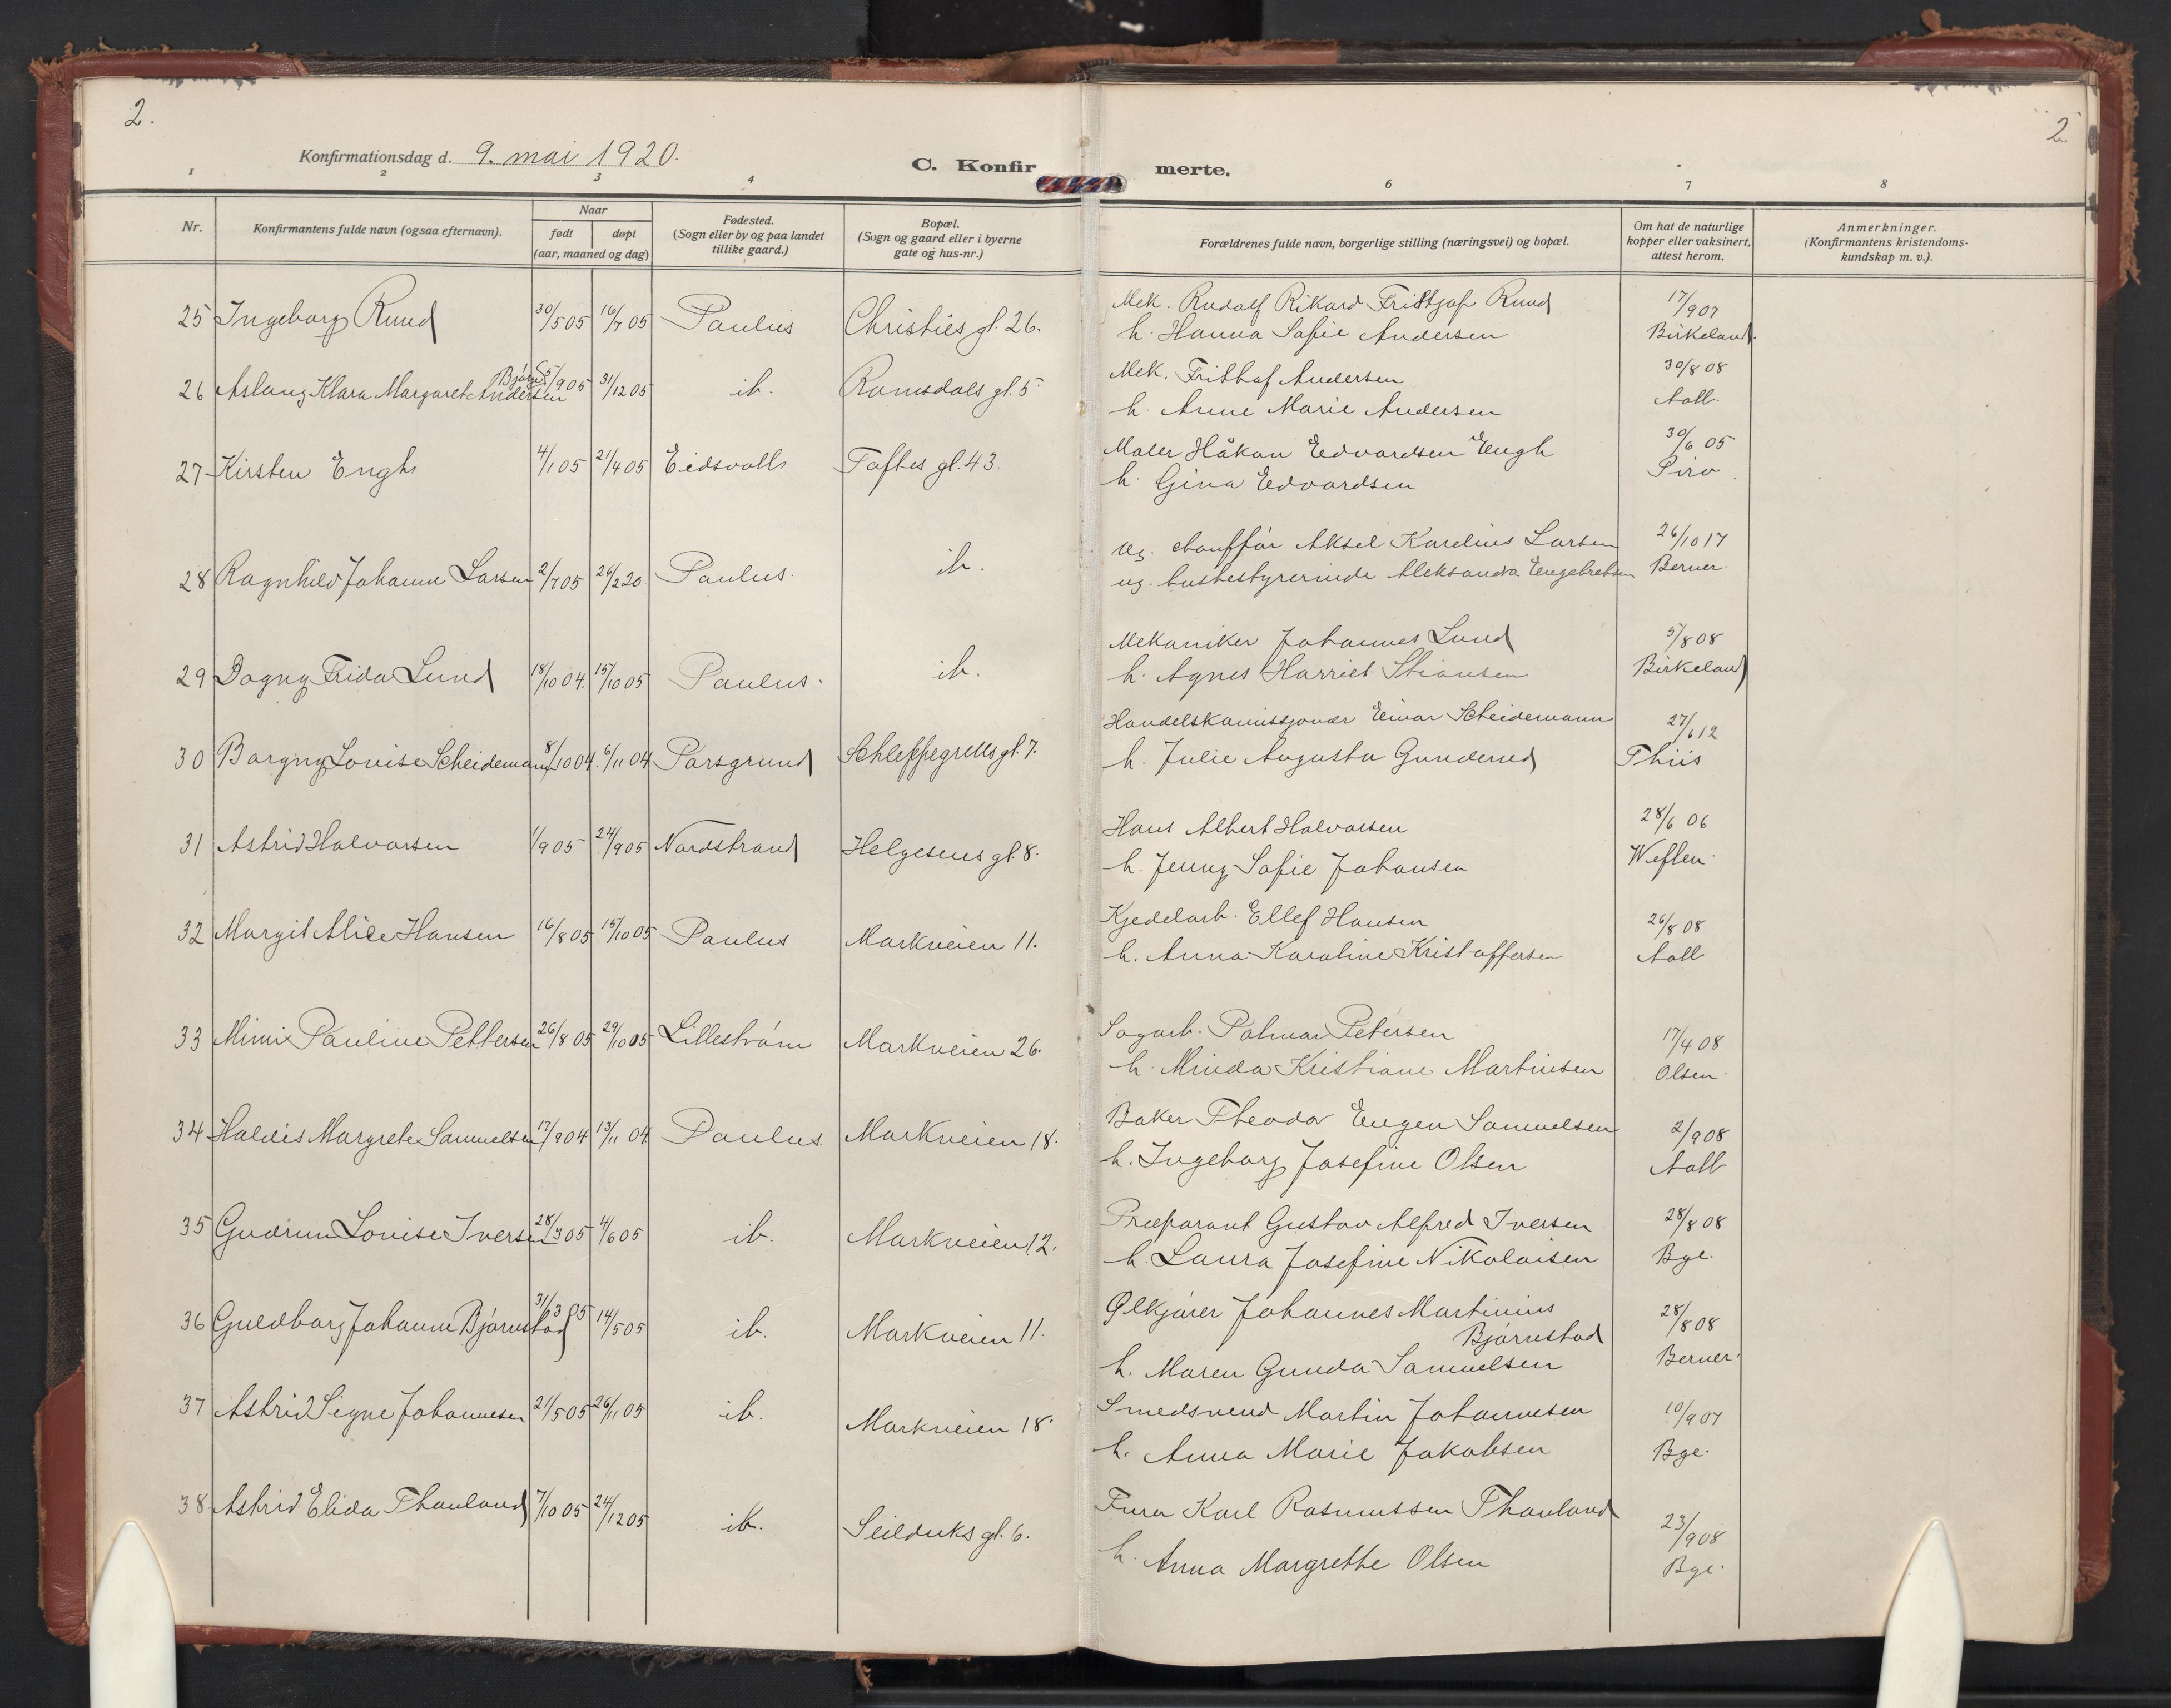 2.
2
Konfirmationsdag d. 9. mai 1920.
C. Konfirmerte.
1 2 3 4 6 7 8
Nr.
Konfirmantens fulde navn (ogsaa efternavn).
Naar
født døpt
(aar, maaned og dag)
Fødested.
(Sogn eller by og paa landet
tillike gaard.)
Bopæl.
(Sogn og gaard eller i byerne
gate og hus-nr.)
Forældrenes fulde navn, borgerlige stilling (næringsvei) og bopæl.
Om hat de naturlige
kopper eller vaksinert,
attest herom.
Anmerkninger.
(Konfirmantens kristendoms-
kundskap m. v.).
25 Ingeborg Ruud 30/5 05 16/7 05 Paulus Christies gt. 26.
Mek. Rudolf Rikard Frittjof Ruud
h. Hanna Sofie Andersen
17/9 07
Birkeland.
26 Aslaug Klara Margarete Bjørg Andersen 5/9 05 31/12 05 ib. Romsdals gt. 5
Mek. Frithof Andersen
h. Anne Marie Andersen
30/8 08
Aall.
27 Kirsten Engh 4/1 05 21/4 05 Eidsvoll Toftes gt. 43.
Maler Håkon Edvardsen Engh
h. Gina Edvardsen
30/6 05
Piro.
28 Ragnhild Johanne Larsen 2/7 05 26/2 20. Paulus. ib.
ug. chauffør Aksel Karelius Larsen
ug. husbestyrerinde Aleksandra Engebretsen
26/10 17
Berner.
29 Dagny Frida Lund 18/10 04. 15/10 05 Paulus. ib.
Mekaniker Johannes Lund
h. Agnes Harriet Stiansen
5/8 08
Birkeland
30 Borgny Lovise Scheidemann 8/10 04. 6/11 04 Porsgrund Schleppegrells gt. 7.
Handelskomissjonær Einar Scheidemann
h. Julie Augusta Gunderud
27/6 12
Thiis
31 Astrid Halvorsen 1/9 05 24/9 05 Nordstrand Helgesens gt. 8.
Hans Albert Halvorsen
h. Jenny Sofie Johansen
28/6 06
Weflen.
32 Margit Alice Hansen 16/8 05 15/10 05 Paulus Markveien 11.
Kjedelarb. Ellef Hansen
h. Anna Karoline Kristoffersen
26/8 08
Aall
33 Mimi Pauline Pettersen 26/8 05 29/10 05 Lillestrøm Markveien 26.
Sagarb. Palmar Petersen
h. Minda Kristiane Martinsen
17/4 08
Olsen.
34 Haldis Margrete Samuelsen 17/9 04 13/11 04 Paulus Markveien 18.
Baker Theodor Eugen Samuelsen
h. Ingeborg Josefine Olsen
2/9 08
Aall
35 Gudrun Lovise Iversen 28/3 05 4/6 05 ib. Markveien 12.
Præparant Gustav Alfred Iversen
h. Laura Josefine Nikolaisen
28/8 08
Bge.
36 Guldborg Johanne Bjørnstad 31/3 05 14/5 05 ib. Markveien 11.
Ølkjører Johannes Martinius
Bjørnstad
h. Maren Gunda Samuelsen
28/8 08
Berner.
37 Astrid Signe Johannesen 21/5 05 26/11 05 ib. Markveien 18.
Smedsvend Martin Johannesen
h. Anna Marie Jakobsen
10/9 07
Bge.
38. Astrid Elida Thauland 7/10 05 24/12 05 ib. Seilduks gt. 6.
Furer Karl Rasmussen Thauland
h. Anna Margrethe Olsen
23/9 08
Bge.